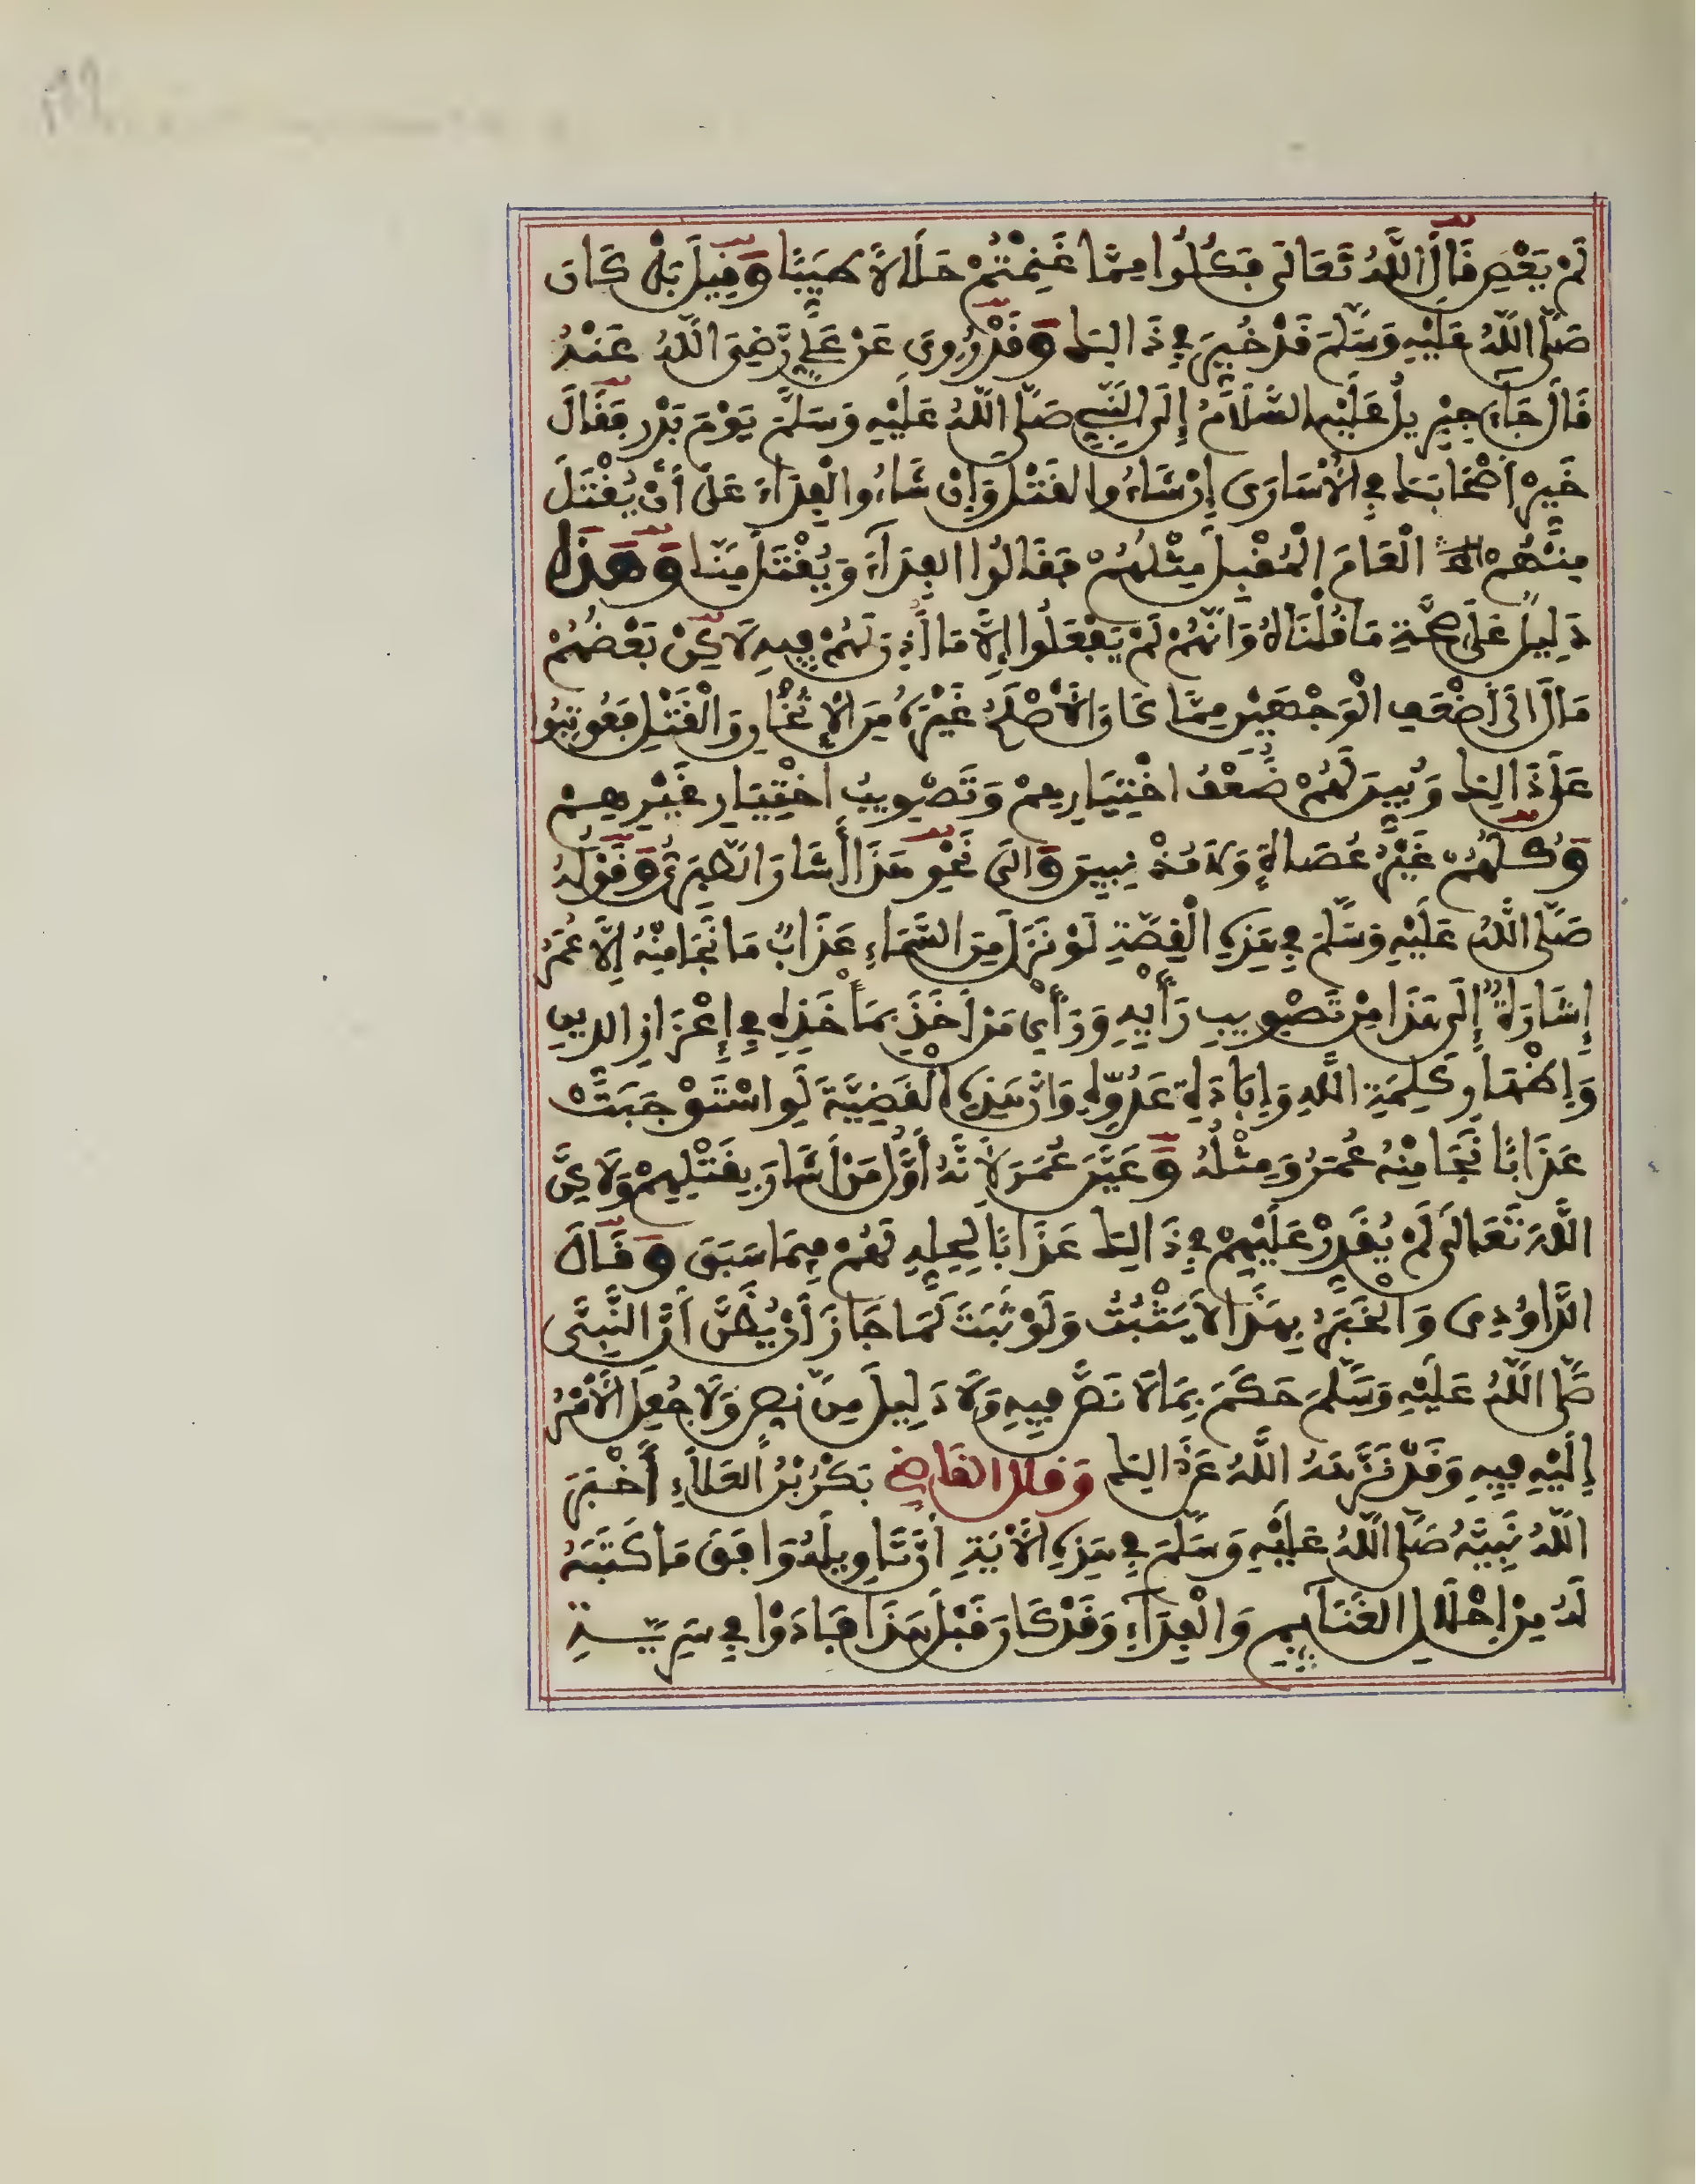 لَمْ يَعْصِ قَالَ اللَّهُ تَعَالَى فَكُلُوا مِمَّا غَنِمْتُمْ حَلَالًا طَيِّبًا وَقِيلَ بَلْ كَانَ
صَلَّى اللَّهُ عَلَيْهِ وَسَلَّمَ قَدْ خُيِّرَ فِي ذَالِكَ وَقَدْ رُوِيَ عَنْ عَلِيٍّ رَّضِيَ اللَّهُ عَنْهُ
قَالَ جَاءَ جِبْرِيلُ عَلَيْهِ السَّلَامُ إِلَى النَّبِيِّ صَلَّى اللَّهُ عَلَيْهِ وَسَلَّمَ يَوْمَ بَدْرٍ فَقَالَ
خَيِّرْ أَصْحَابَكَ فِي الْأُسَارَى إِنْ شَاءُوا الْقَتْلَ وَإِنْ شَاءُوا الْفِدَاءَ عَلَى أَنْ يُقْتَلَ
مِنْهُمْ الْعَامَ الْمُقْبِلَ مِثْلُهُمْ فَقَالُوا الْفِدَاءَ وَيُقْتَلُ مِنَّا وَهَذَا
دَلِيلٌ عَلَى صِحَّةِ مَا قُلْنَاهُ وَأَنَّهُمْ لَمْ يَفْعَلُوا إِلَّا مَا أُذِنَ لَهُمْ فِيهِ لَاكِنْ بَعْضُهُمْ
مَالَ إِلَى أَضْعَفِ الْوَجْهَيْنِ مِمَّا كَانَ الْأَصْلَحُ غَيْرَهُ مِنَ الْإِثْخَانِ وَالْقَتْلِ فَعُوتِبُوا
عَلَى ذَالِكَ وَبُيِّنَ لَهُمْ ضُعْفُ اخْتِيَارِهِمْ وَتَصْوِيبُ اخْتِيَارِ غَيْرِهِمْ
وَكُلُّهُمْ غَيْرُ عُصَاةٍ وَلَا مُذْنِبِينَ وَإِلَى نَحْوِ هَذَا أَشَارَ الطَّبَرِيُّ وَقَوْلُهُ
صَلَّى اللَّهُ عَلَيْهِ وَسَلَّمَ فِي هَذِهِ الْقِصَّةِ لَوْ نَزَلَ مِنَ السَّمَاءِ عَذَابٌ مَا نَجَا مِنْهُ إِلَّا عُمَرُ
إِشَارَةٌ إِلَى هَذَا مِنْ تَصْوِيبِ رَأْيِهِ وَرَأْيِ مَنْ أَخَذَ بِمَأْخَذِهِ فِي إِعْزَازِ الدِّينِ
وَإِظْهَارِ كَلِمَةِ اللَّهِ وَإِبَادَةِ عَدُوِّهِ وَأَنَّ هَذِهِ الْقَضِيَّةَ لَوِ اسْتَوْجَبَتْ
عَذَابًا نَجَا مِنْهُ عُمَرُ وَمِثْلُهُ وَعَيَّنَ عُمَرَ لِأَنَّهُ أَوَّلُ مَنْ أَشَارَ بِقَتْلِهِمْ وَلَاكِنَّ
اللَّهَ تَعَالَى لَمْ يُقَدِّرْ عَلَيْهِمْ فِي ذَالِكَ عَذَابًا لِحِلِّهِ لَهُمْ فِيمَا سَبَقَ وَقَالَ
الدَّاوُدِي وَالْخَبَرُ بِهَذَا لَا يَثْبُتُ وَلَوْ ثَبَتَ لَمَا جَازَ أَنْ يُظَنَّ أَنَّ النَّبِيَّ
صَلَّى اللَّهُ عَلَيْهِ وَسَلَّمَ حَكَمَ بِمَا لَا نَصَّ فِيهِ وَلَا دَلِيلَ مِنْ نَصٍّ وَلَا جُعِلَ الْأَمْرُ
إِلَيْهِ فِيهِ وَقَدْ نَزَّهَهُ اللَّهُ عَنْ ذَالِكَ وَقَالَ الْقَاضِي بَكْرُ بْنُ الْعَلَاءِ أَخْبَرَ
اللَّهُ نَبِيَّهُ صَلَّى اللَّهُ عَلَيْهِ وَسَلَّمَ فِي هَذِهِ الْآيَةِ أَنَّ تَأْوِيلَهُ وَافَقَ مَا كَتَبَهُ
لَهُ مِنْ إِحْلَالِ الْغَنَائِمِ وَالْفِدَاءِ وَقَدْ كَانَ قَبْلَ هَذَا فَادَوْا فِي سَرِيَّةِ